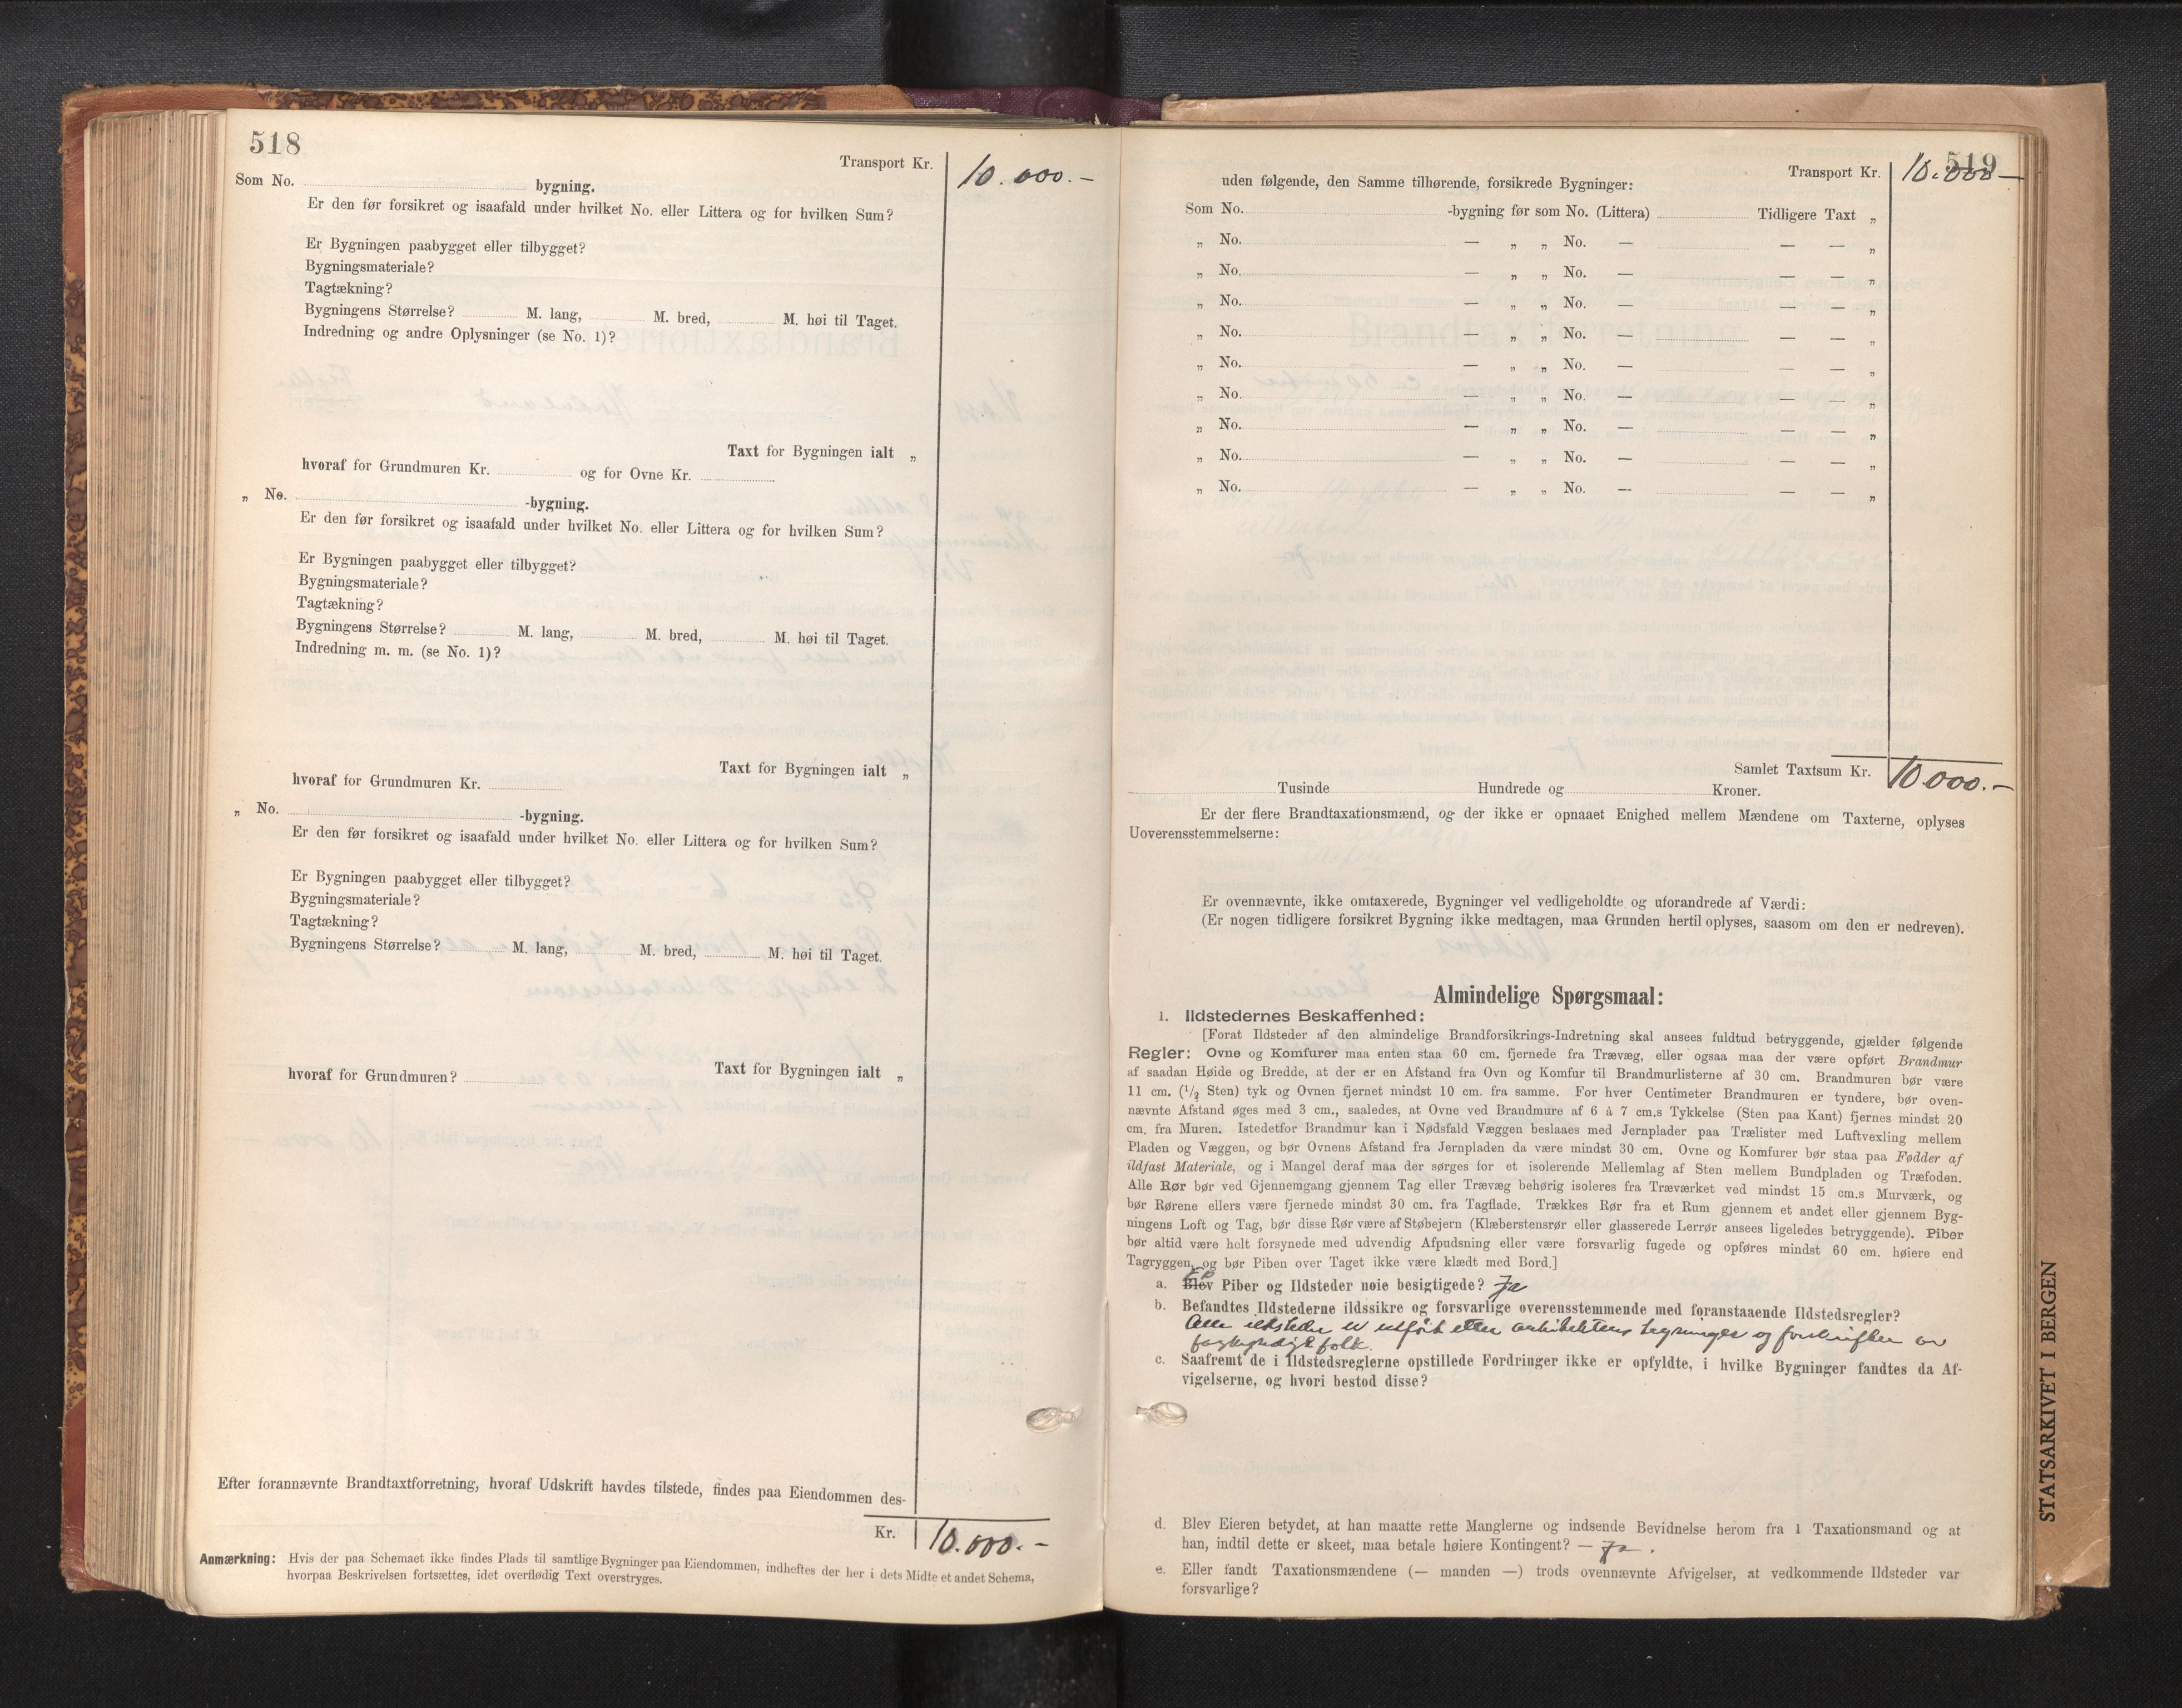 518
Transport Kr. 10.000.-
Som No. bygning.
Er den før forsikret og isaafald under hvilket No. eller Littera og for hvilken Sum?
Er Bygningen paabygget eller tilbygget?
Bygningsmateriale?
Tagtækning?
Bygningens Størrelse? M. lang, M. bred, M. høi til Taget.
Indredning og andre Oplysninger (se No. 1)?
Taxt for Bygningen ialt „
hvoraf for Grundmuren Kr. og for Ovne Kr.
„ No. -bygning.
Er den før forsikret og isaafald under hvilket No. eller Littera og for hvilken Sum?
Er Bygningen paabygget eller tilbygget?
Bygningsmateriale?
Tagtækning?
Bygningens Størrelse? M. lang, M. bred, M. høi til Taget.
Indredning m. m. (se No. 1)?
Taxt for Bygningen ialt „
hvoraf for Grundmuren Kr.
„ No. -bygning.
Er den før forsikret og isaafald under hvilket No. eller Littera og for hvilken Sum?
Er Bygningen paabygget eller tilbygget?
Bygningsmateriale?
Tagtækning?
Bygningens Størrelse? M. lang, M. bred, M. høi til Taget.
Taxt for Bygningen ialt „
hvoraf for Grundmuren?
Efter forannævnte Brandtaxtforretning, hvoraf Udskrift havdes tilstede, findes paa Eiendommen des-
Kr. 10.000.-
Anmærkning: Hvis der paa Schemaet ikke findes Plads til samtlige Bygninger paa Eiendommen, indheftes der her i dets Midte et andet Schema,
hvorpaa Beskrivelsen fortsættes, idet overflødig Text overstryges.
519
Transport Kr. 10.000-
uden følgende, den Samme tilhørende, forsikrede Bygninger:
Som No. -bygning før som No. (Littera) Tidligere Taxt „
„ No. — „ „ No. — — — „
„ No. — „ „ No. — — — „
„ No. — „ „ No. — — — „
„ No. — „ „ No. — — — „
„ No. — „ „ No. — — — „
„ No. — „ „ No. — — — „
„ No. — „ „ No. — — — „
„ No. — „ „ No. — — — „
„ No. — „ „ No. — — — „
Samlet Taxtsum Kr. 10.000.-
Tusinde Hundrede og Kroner.
Er der flere Brandtaxationsmænd, og der ikke er opnaaet Enighed mellem Mændene om Taxterne, oplyses
Uoverensstemmelserne:
Er ovennævnte, ikke omtaxerede, Bygninger vel vedligeholdte og uforandrede af Værdi:
(Er nogen tidligere forsikret Bygning ikke medtagen, maa Grunden hertil oplyses, saasom om den er nedreven).
Almindelige Spørgsmaal:
1. Ildstedernes Beskaffenhed:
[Forat Ildsteder af den almindelige Brandforsikrings-Indretning skal ansees fuldtud betryggende, gjælder følgende
Regler: Ovne og Komfurer maa enten staa 60 cm. fjernede fra Trævæg, eller ogsaa maa der være opført Brandmur
af saadan Høide og Bredde, at der er en Afstand fra Ovn og Komfur til Brandmurlisterne af 30 cm. Brandmuren bør være
11 cm. (1/2 Sten) tyk og Ovnen fjernet mindst 10 cm. fra samme. For hver Centimeter Brandmuren er tyndere, bør oven-
nævnte Afstand øges med 3 cm., saaledes, at Ovne ved Brandmure af 6 à 7 cm.s Tykkelse (Sten paa Kant) fjernes mindst 20
cm. fra Muren. Istedetfor Brandmur kan i Nødsfald Væggen beslaaes med Jernplader paa Trælister med Luftvexling mellem
Pladen og Væggen, og bør Ovnens Afstand fra Jernpladen da være mindst 30 cm. Ovne og Komfurer bør staa paa Fødder af
ildfast Materiale, og i Mangel deraf maa der sørges for et isolerende Mellemlag af Sten mellem Bundpladen og Træfoden.
Alle Rør bør ved Gjennemgang gjennem Tag eller Trævæg behørig isoleres fra Træværket ved mindst 15 cm.s Murværk, og
bør Rørene ellers være fjernede mindst 30 cm. fra Tagflade. Trækkes Rør fra et Rum gjennem et andet eller gjennem Byg-
ningens Loft og Tag, bør disse Rør være af Støbejern (Klæberstensrør eller glasserede Lerrør ansees ligeledes betryggende). Piber
bør altid være helt forsynede med udvendig Afpudsning eller være forsvarlig fugede og opføres mindst 60 cm. høiere end
Tagryggen, og bør Piben over Taget ikke være klædt med Bord.]
a. Blev Piber og Ildsteder nøie besigtigede? Ja
b. Befandtes Ildstederne ildssikre og forsvarlige overensstemmende med foranstaaende Ildstedsregler?
Alle ildsteder er utført etter arkitektens tegninger og forskrifter av
fagkyndige folk.
c. Saafremt de i Ildstedsreglerne opstillede Fordringer ikke er opfyldte, i hvilke Bygninger fandtes da Af-
vigelserne, og hvori bestod disse?
d. Blev Eieren betydet, at han maatte rette Manglerne og indsende Bevidnelse herom fra 1 Taxationsmand og at
han, indtil dette er skeet, maa betale høiere Kontingent? — Ja.
e. Eller fandt Taxationsmændene (— manden —) trods ovennævnte Afvigelser, at vedkommende Ildsteder var
forsvarlige?
STATSARKIVET I BERGEN